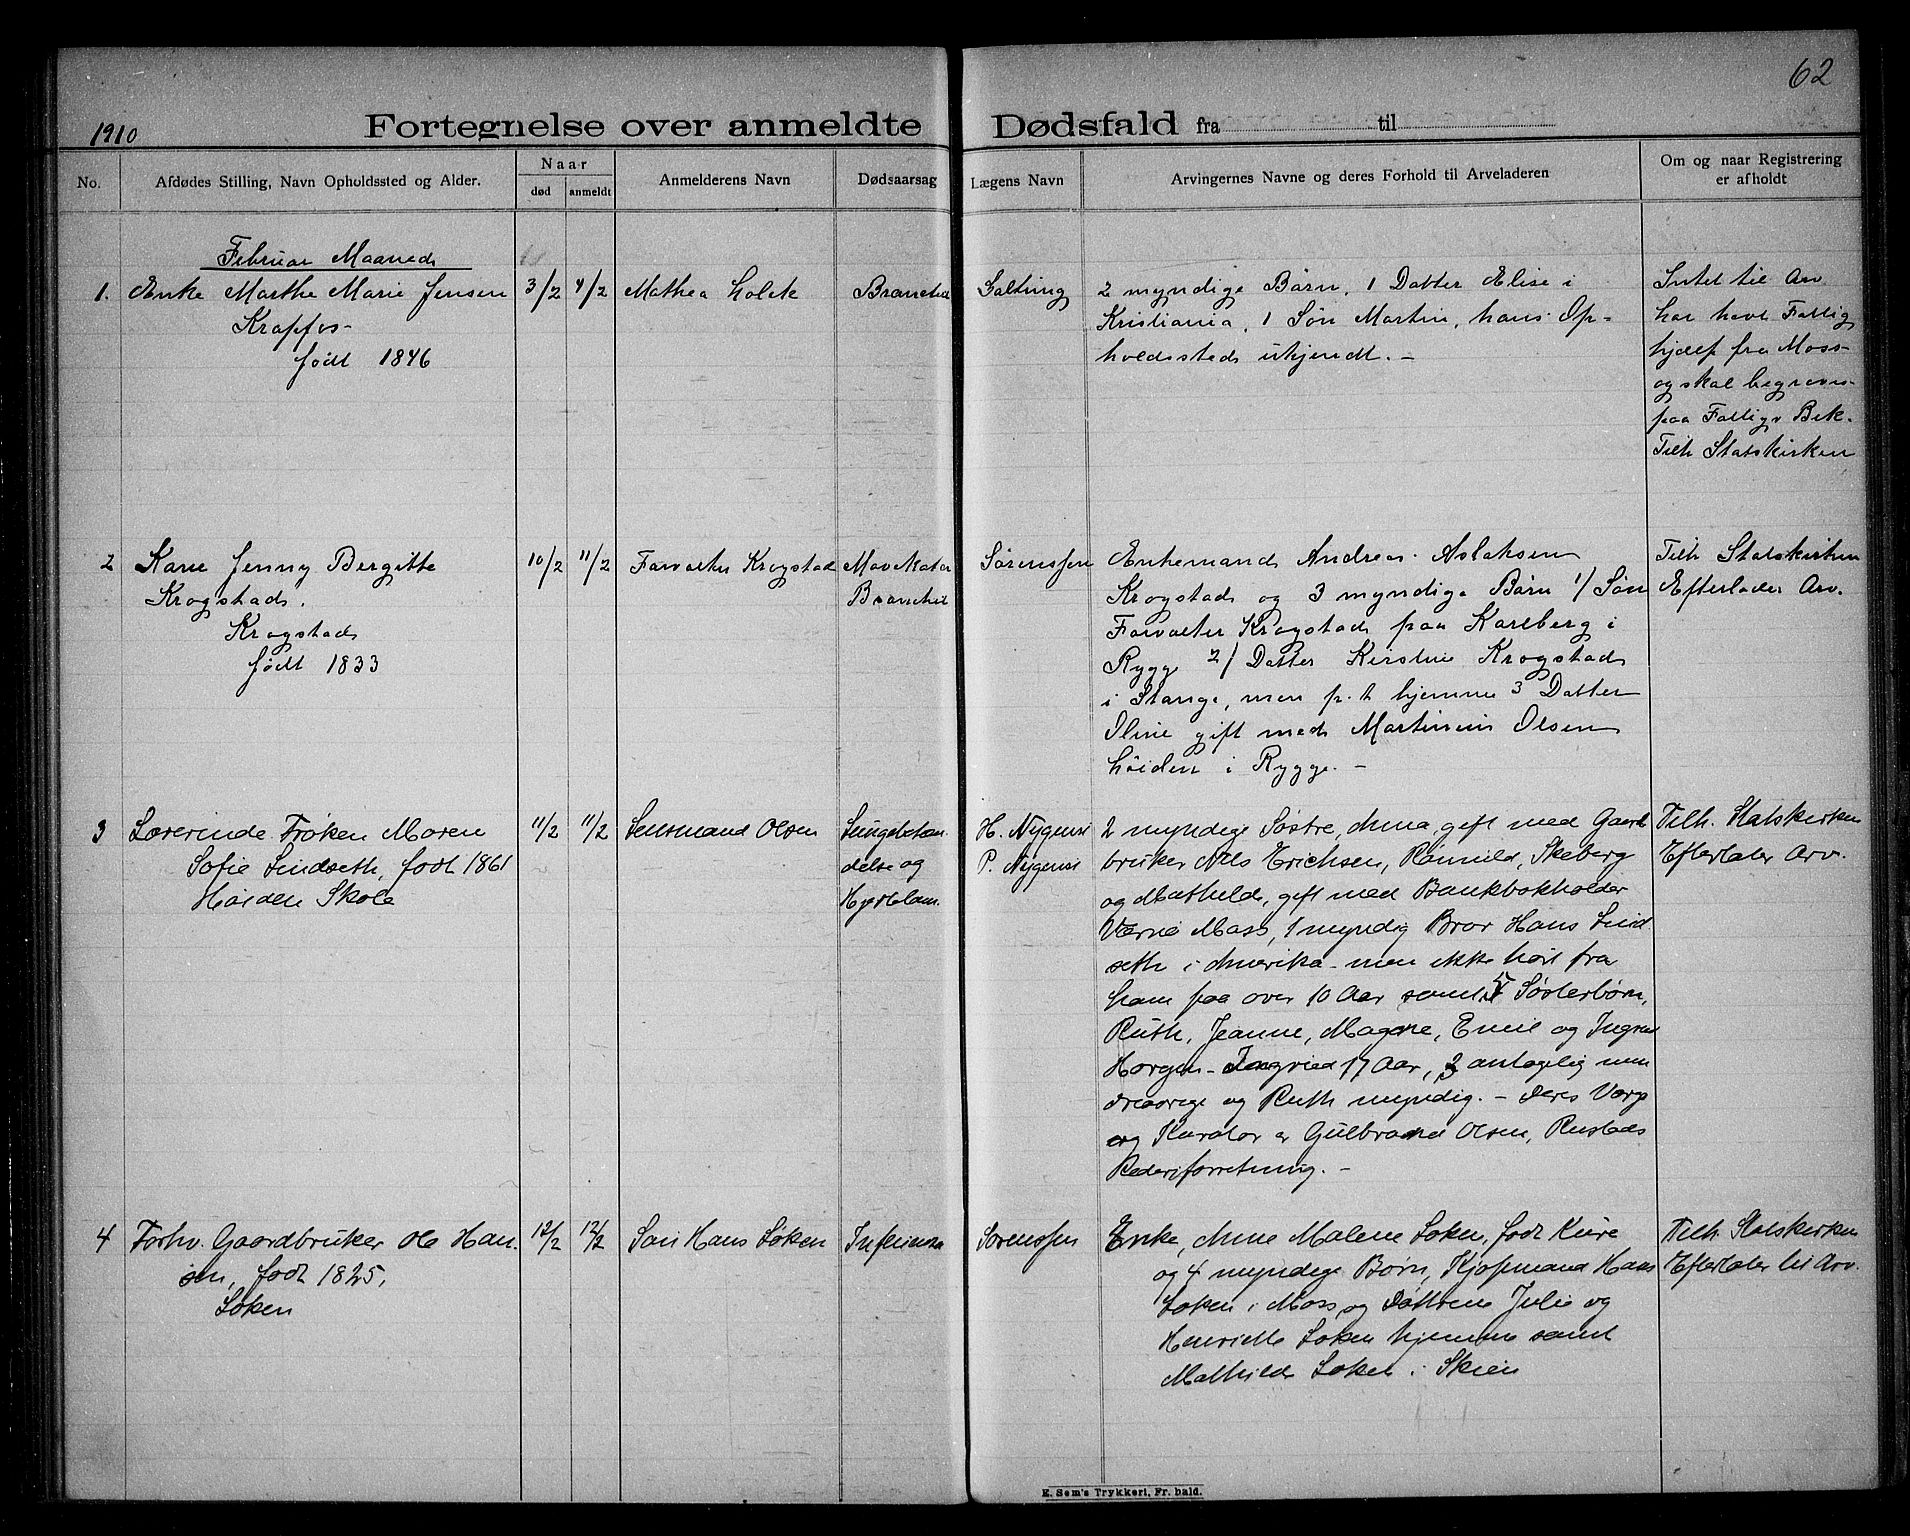 62
1910 Fortegnelse over anmeldte Dødsfald fra til
No.
Afdødes Stilling, Navn Opholdssted og Alder.
Naar
død
anmeldt
Anmelderens Navn
Dødsaarsag
Lægens Navn
Arvingernes Navne og deres Forhold til Arveladeren
Om og naar Registrering
er afholdt
Februar Maaned
1. Enke Marthe Marie Jensen
Krapfos
født 1846
3/2
4/2
Mathea Holck
Salting
2 myndige Børn, 1 Datter Elise i
Kristiania, 1 Søn Martin, hans Op-
holdssted ukjendt. -
Intet til Arv
har havt Fattig
hjælp fra Moss
og skal begraves
paa Fattigv Bek.
Tilh Statskirken
2 Karen Jenny Bergitte
Krogstad.
Krogstad
født 1833
10/2
11/2
Forvalter Krogstad
Sørenssen
Enkemand Andreas Aslaksen
Krogstad og 3 myndige Børn 1/ Søn
Forvalter Krogstad paa Karlberg i
Rygge 2/ Datter Kirstine Krogstad
i Stange, men p. t hjemme 3 Datter
Oline gift med Martinius Olsen
Høiden i Rygge. -
Tilh Statskirken
Efterlader Arv.
3 Lærerinde Frøken Maren
Sofie Lindseth, født 1861
Høiden Skole
11/2
11/2
Lensmand Olsen
Lungebetæn
delse og
H. Nygaard
P. Nygaard
2 myndige Søstre, Anna, gift med Gaard
bruker Nils Erichsen, Rømuld, Skeberg
og Mathilde, gift med Bankbokholder
Værne Moss, 1 myndig Bror Hans Lind
seth i Amerika - men ikke hørt fra
ham paa over 10 Aar samt 5 Søsterbørn,
Ruth, Jeanne, Magnne, Emil og Ingrid
Horgen - Ingrid 17 Aar, 3 antagelig min
dreaarige og Ruth myndig. - Deres Værge
og Kurator er Gulbrand Olsen, Rustads
Rederiforretning. -
Tilh. Statskirken
Efterlater Arv.
4 Forhv. Gaardbruker Ole Han
sen, født 1825,
Løken
12/2
12/2
Søn Hans Løken
Influensa
Sørenssen
Enke, Anne Malene Løken, født Kure
og 4 myndige Børn, Kjøpmand Hans
Løken i Moss og Døttrene Julie og
Henriette Løken hjemme samt
Mathilde Løken i Skien
Tilh. Statskirken
Efterlater til Arv.
E. Sem's Trykkeri, Fr. hald.